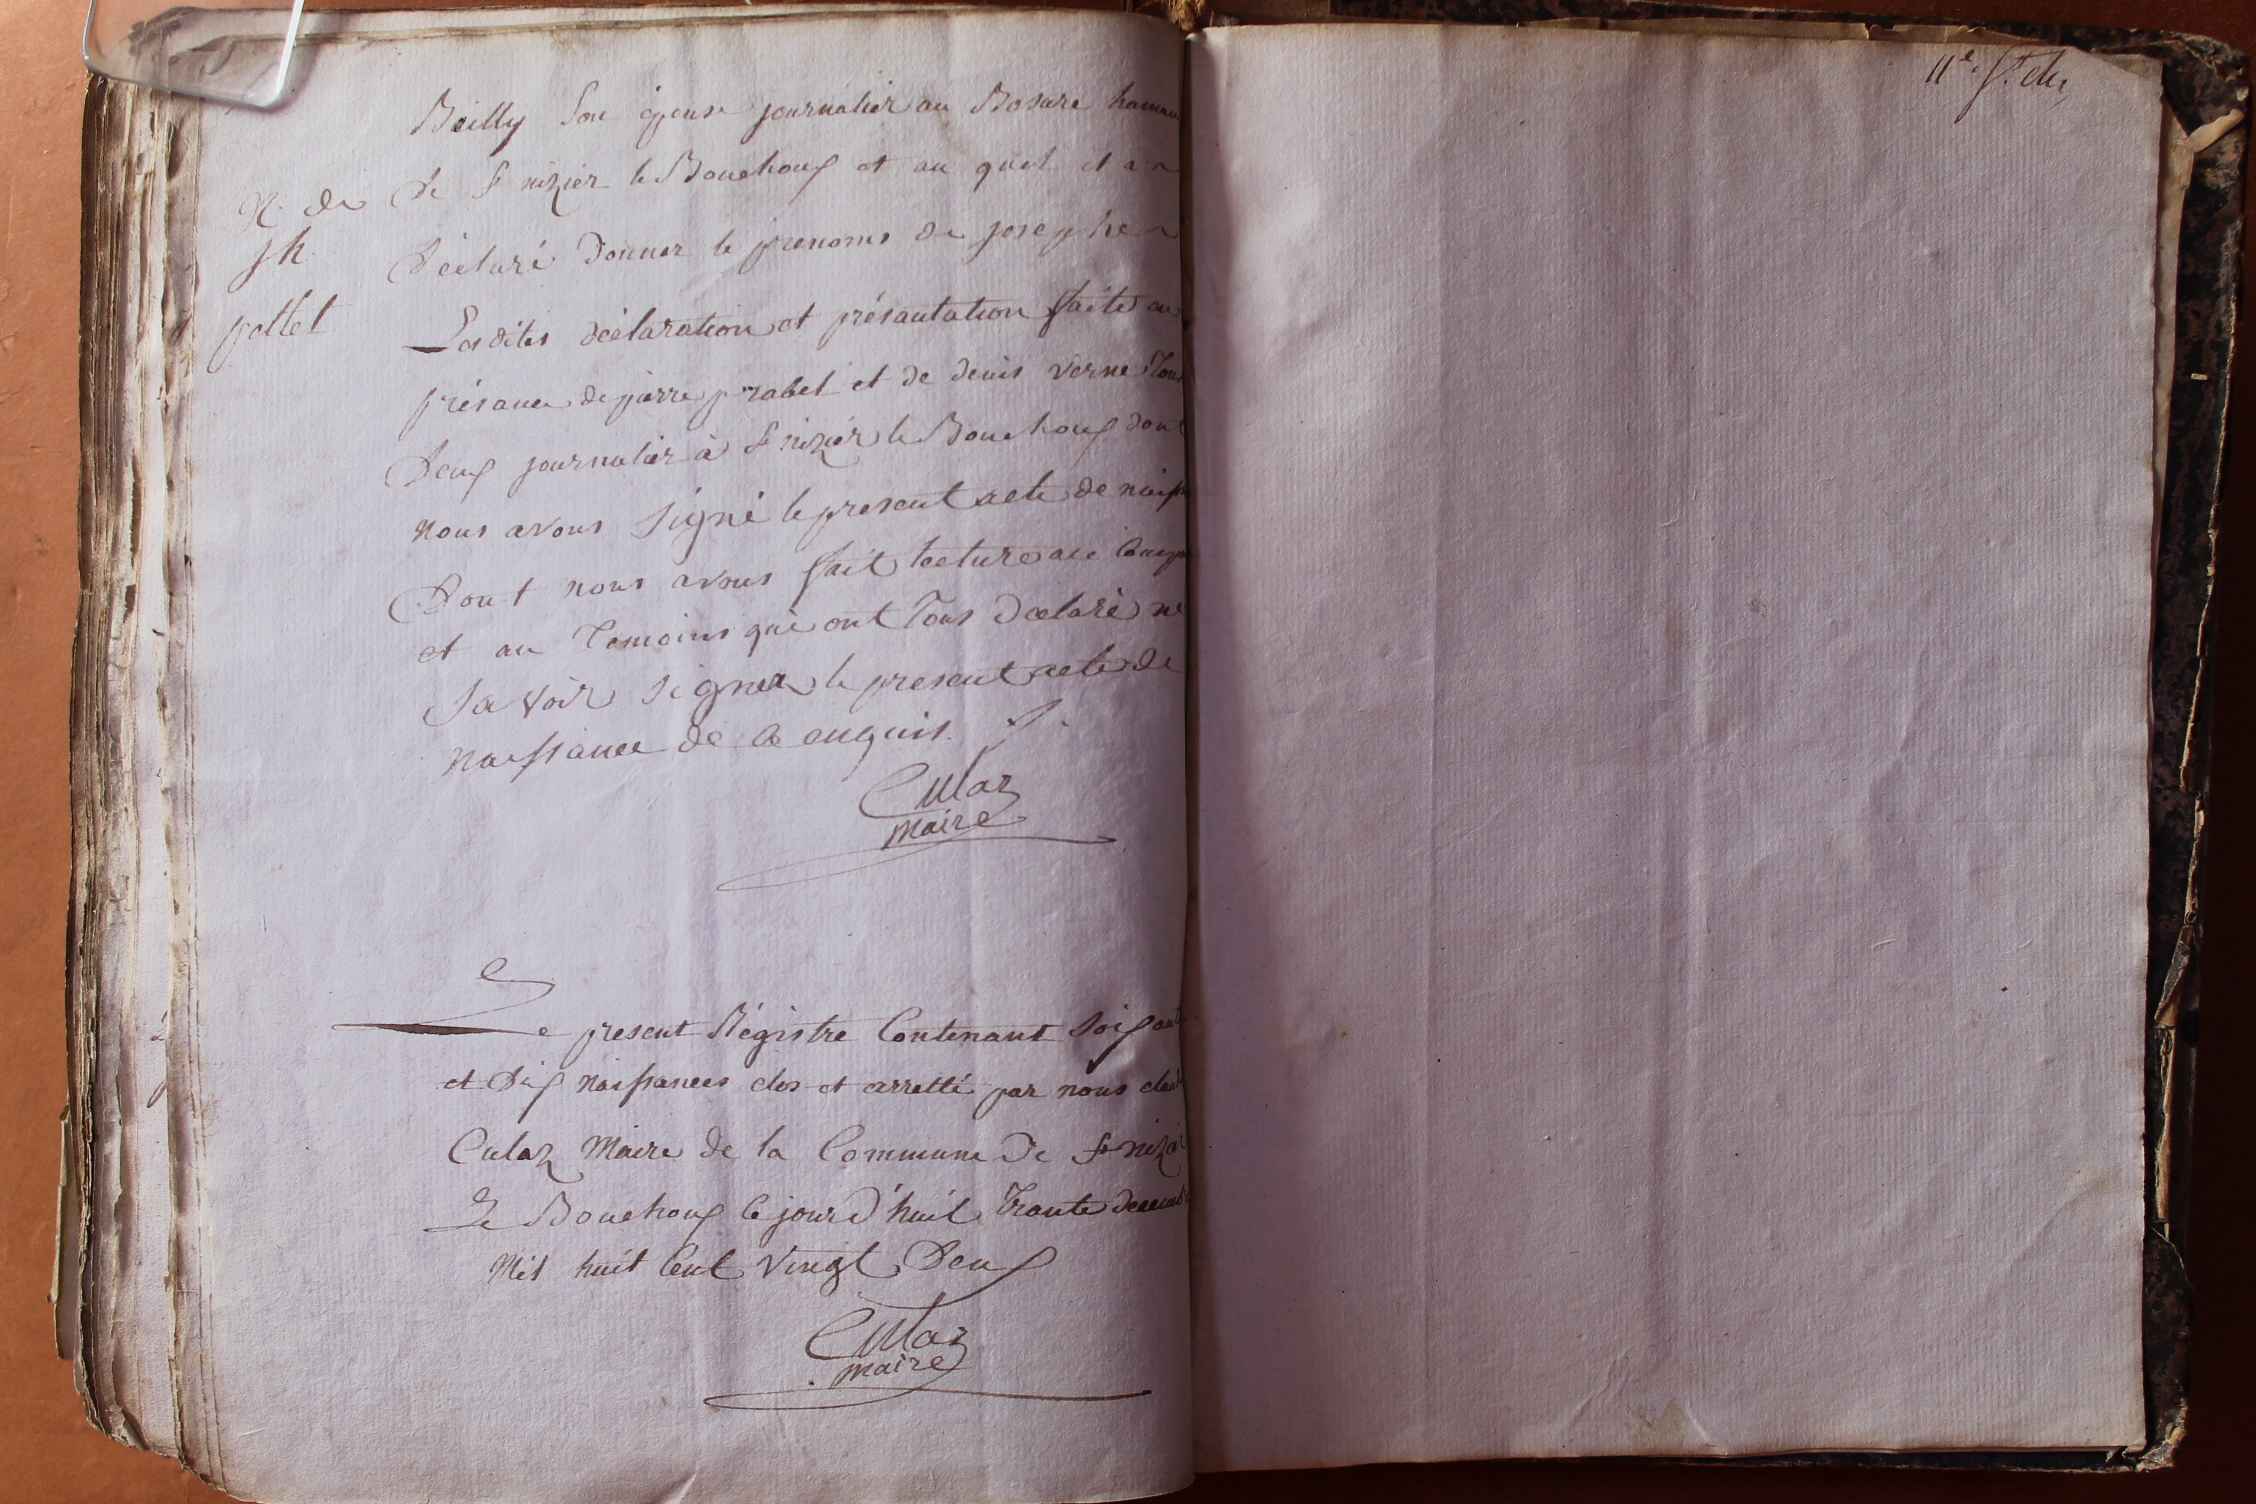 Boilly son épouse journalier au Bosure hamau
De St nizier le Bouchoux et au quel il a
Déclaré Donner le prenoms de joseph
N. de
jh
pollet
Lesdites déclaration et présantation faite en
présance de pierre prabel et de denis verne Tous
Deux journalier à St nizier le Bouchoux dont
nous avons signé le present acte de naiss
Dont nous avons fait lecture au comp
et au Temoins qui ont Tous declaré ne
Savoir signer le present acte de
naissance de ce enquis.
Culaz
maire
Le present Régistre Contenant Soixante
et Dix naissances clos et arretté par nous claude
Culaz Maire de la Commune De St nizier
Le Bouchoux Ce jour d'huit Trante decembre
Mil huit Cent vingt Deux
Culaz
maire